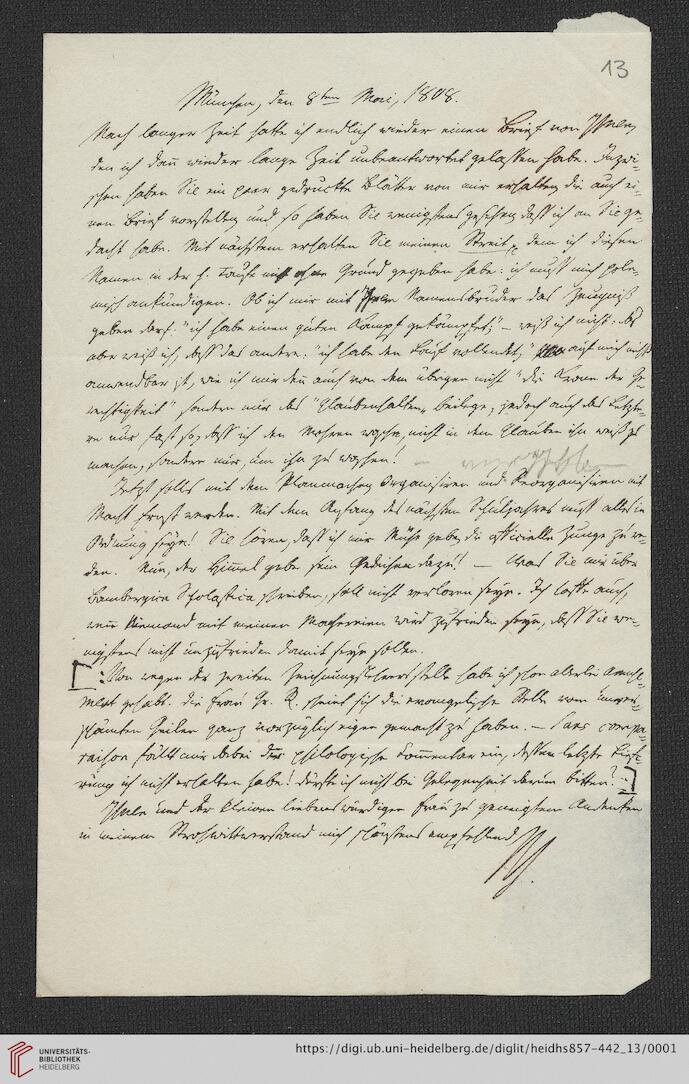 13
München, den 8ten Mai, 1808.
Nach langer Zeit hatte ich endlich wieder einen Brief von Ihnen,
den ich dann wieder lange Zeit unbeantwortet gelassen habe. Inzwi-
schen haben Sie ein paar gedruckte Blätter von mir erhalten, die auch ei-
nen Brief vorstellen, und so haben Sie wenigstens gesehen, daß ich an Sie ge-
dacht habe. Mit nächstem erhalten Sie meinen Streit, dem ich diesen
Namen in der h. Taufe nicht ohne Grund gegeben habe: ich muß mich pole-
misch ankündigen. Ob ich mir mit Ihrem Namensbruder das Zeugniß
geben darf: "ich habe einen guten Kampf gekämpfet," – weiß ich nicht: das
aber weiß ich, daß das andere: "ich habe den Lauf vollendet," auf mich nicht
anwendbar ist, wie ich mir denn auch von dem übrigen nicht "die Krone der Ge-
rechtigkeit" sondern nur das "Glaubenhalten" beilege, jedoch auch das Letzte-
re nur fast so, daß ich den Mohren wasche, nicht in dem Glauben ihn weiß zu
machen, sondern nur, um ihn zu waschen!
Jetzt solls mit dem Planmachen, Organisiren und Reorganisiren mit
Macht Ernst werden. Mit dem Anfang des nächsten Schuljahres muß alles in
Ordnung seyn! Sie hören, daß ich mir Mühe gebe, die officielle Zunge zu re-
den. Nun, der Himmel gebe sein Gedeihen dazu! – Was Sie mir über
Bambergica Scholastica schreiben, soll nicht verloren seyn. Ich hoffe auch,
wenn Niemand mit meinen Machereien wird zufrieden seyn, daß Sie we-
nigstens nicht unzufrieden damit seyn sollen.
[: Von wegen der zweiten Zeichnungslehrersstelle habe ich schon allerlei Amuse-
ment gehabt. Die Frau Gr. R. scheint sich die evangelische Stelle vom unver-
schämten Geilen ganz vorzüglich eigen gemacht zu haben. – Sans compa-
raison fällt mir dabei der philologische Commentar ein, dessen letzte Liefe-
rung ich nicht erhalten habe! Dürfte ich nicht bei Gelegenheit darum bitten? :]
Ihnen und der kleinen liebenswürdigen Frau zu geneigtem Andenken
in meinem Strohwittwerstand mich schönstens empfehlend
UNIVERSITÄTS-
BIBLIOTHEK
HEIDELBERG
https://digi.ub.uni-heidelberg.de/diglit/heidhs857-442_13/0001